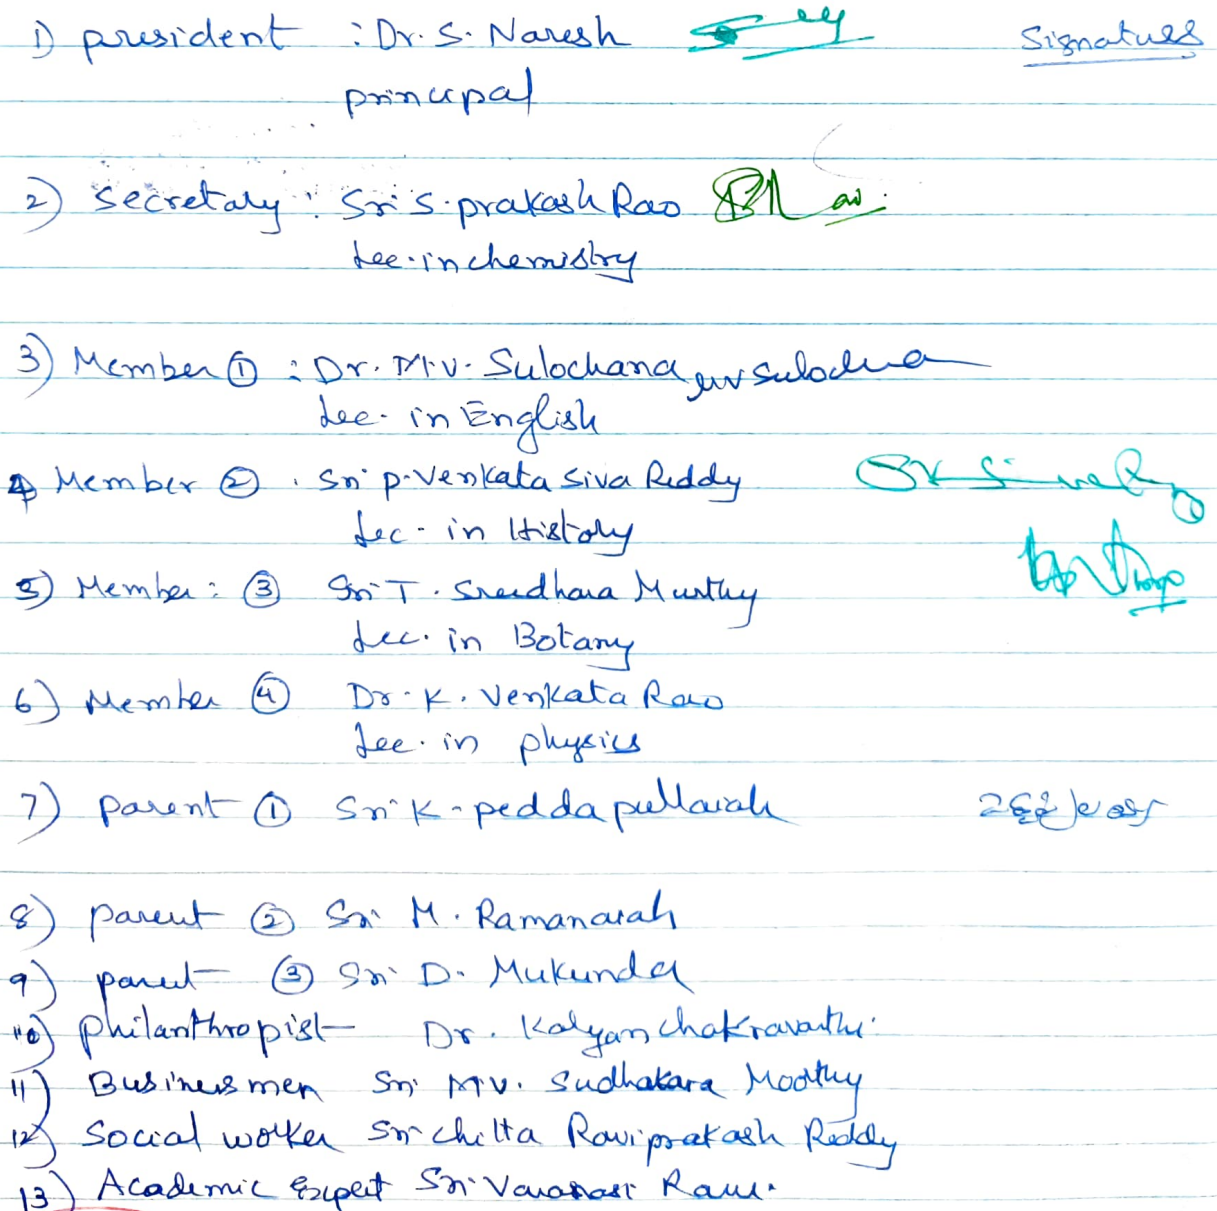 1) president : Dr. S. Naresh Signatures
principal
2) Secretary : Sri S. prakash Rao
Lec. in chemistry
3) Member ① : Dr. M.V. Sulochana mv Sulochana
Lec. in English
4 Member ② . Sri p. Venkata Siva Reddy
Lec - in History
5) Member : ③ Sri T. Sreedhara Murthy
Lec. in Botany
6) Member ④ Dr. K. Venkata Rao
Lec. in physics
7) parent ① Sri K. pedda pullaiah
8) parent ② Sri M. Ramanaiah
9) parent ③ Sri D. Mukunda
10) philanthropist Dr. Kalyan chakravarthi
11) Businessmen Sri M.V. Sudhakara Moorthy
12) Social worker Sri chitta Raviprakash Reddy
13) Academic Expert Sri Varanasi Ramu.